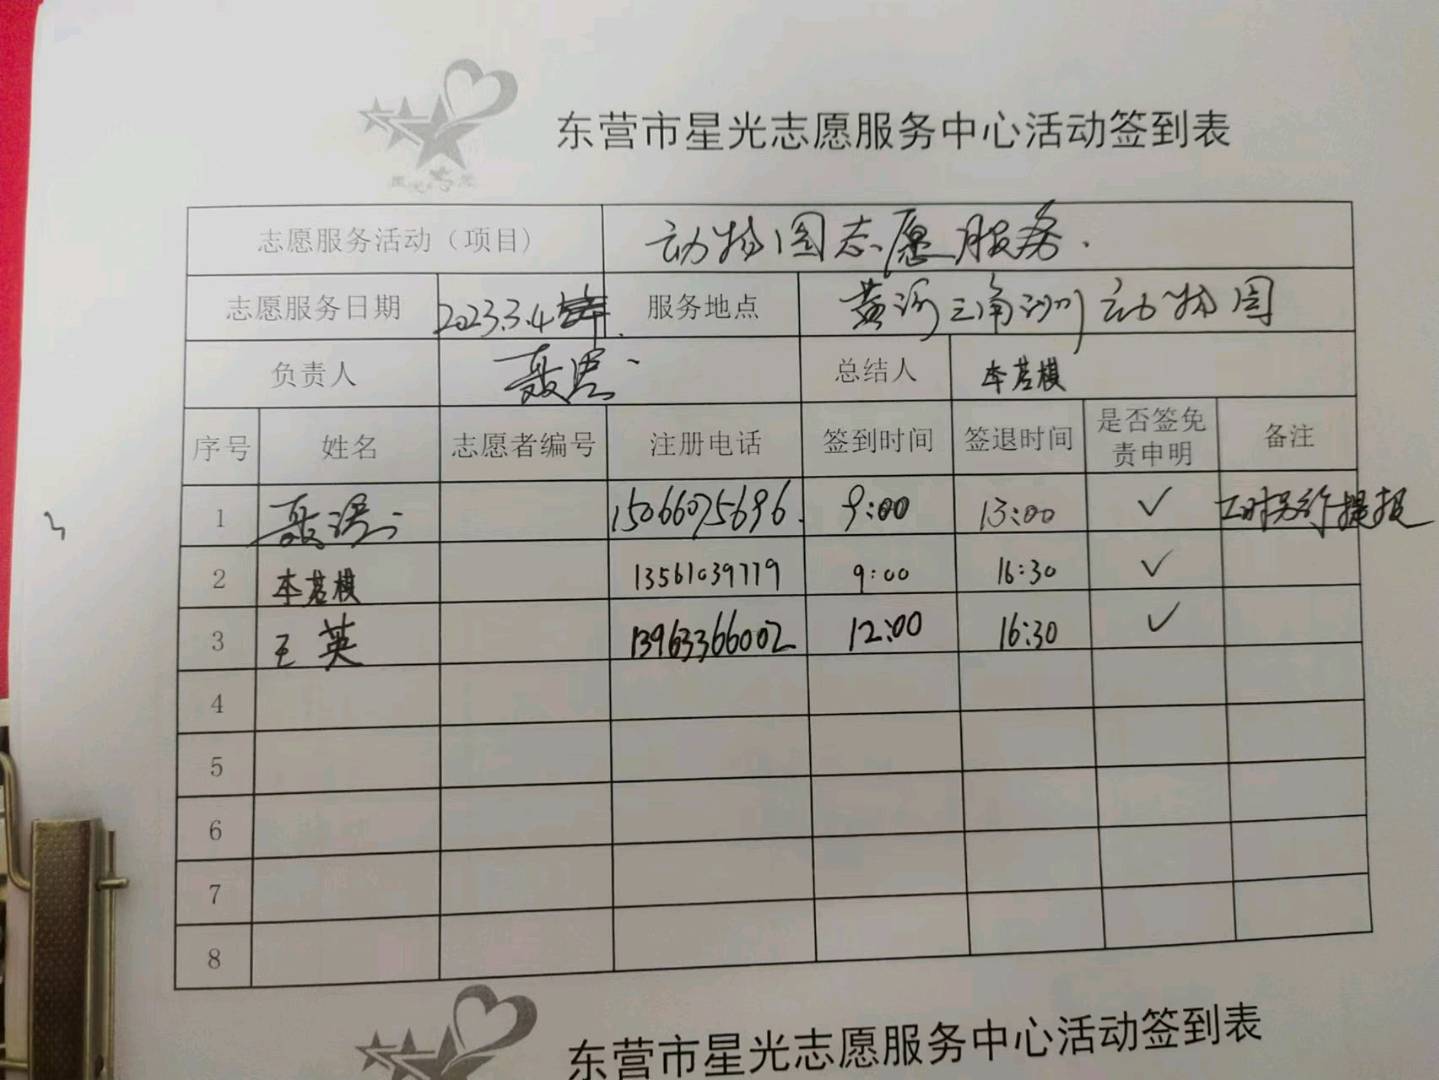 东营市星光志愿服务中心活动签到表
志愿服务活动（项目） 动物园志愿服务.
志愿服务日期 2023.3.4 服务地点 黄河三角洲动物园
负责人 总结人 李茗模
序号 姓名 志愿者编号 注册电话 签到时间 签退时间 是否签免责申明 备注
1 15066075696. 9:00 13:00 ✓ 工时另行提报
2 李茗模 13561039779 9:00 16:30 ✓
3 王英 13963366002 12:00 16:30 ✓
4
5
6
7
8
东营市星光志愿服务中心活动签到表